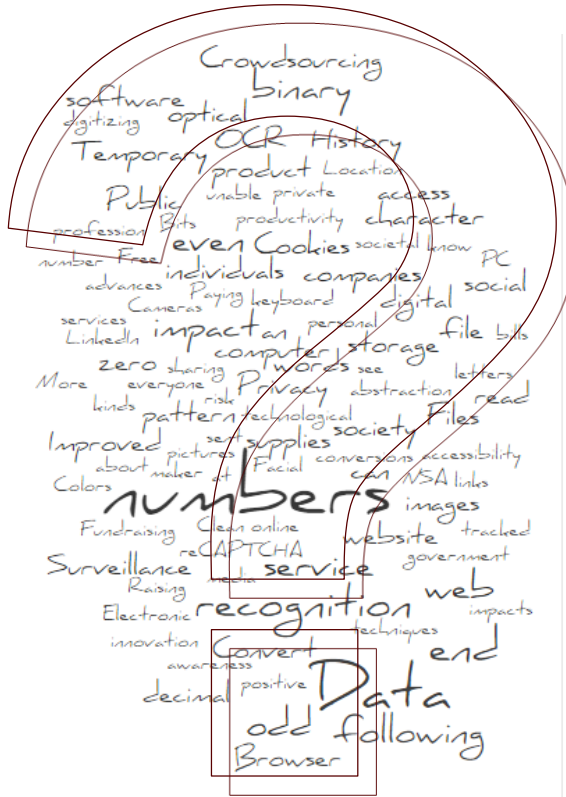 Crowdsourcing
binary
software
digitizing optical
OCR History
Temporary
product Location
Public unable private access
profession Bits productivity character
even Cookies societal know
number Free PC
individuals companies social
advances Paying keyboard digital
Cameras
services personal
LinkedIn impact an file bills
computer storage
zero sharing words see letters
More everyone Privacy abstraction read
kinds risk
pattern technological Files
Improved sent supplies society
pictures Facial conversions accessibility
about maker at can NSA links
Colors numbers images
Fundraising Clean online website tracked
reCAPTCHA government
Surveillance media service
Raising web
Electronic recognition impacts
techniques
innovation Convert end
awareness
decimal positive Data
odd following
Browser